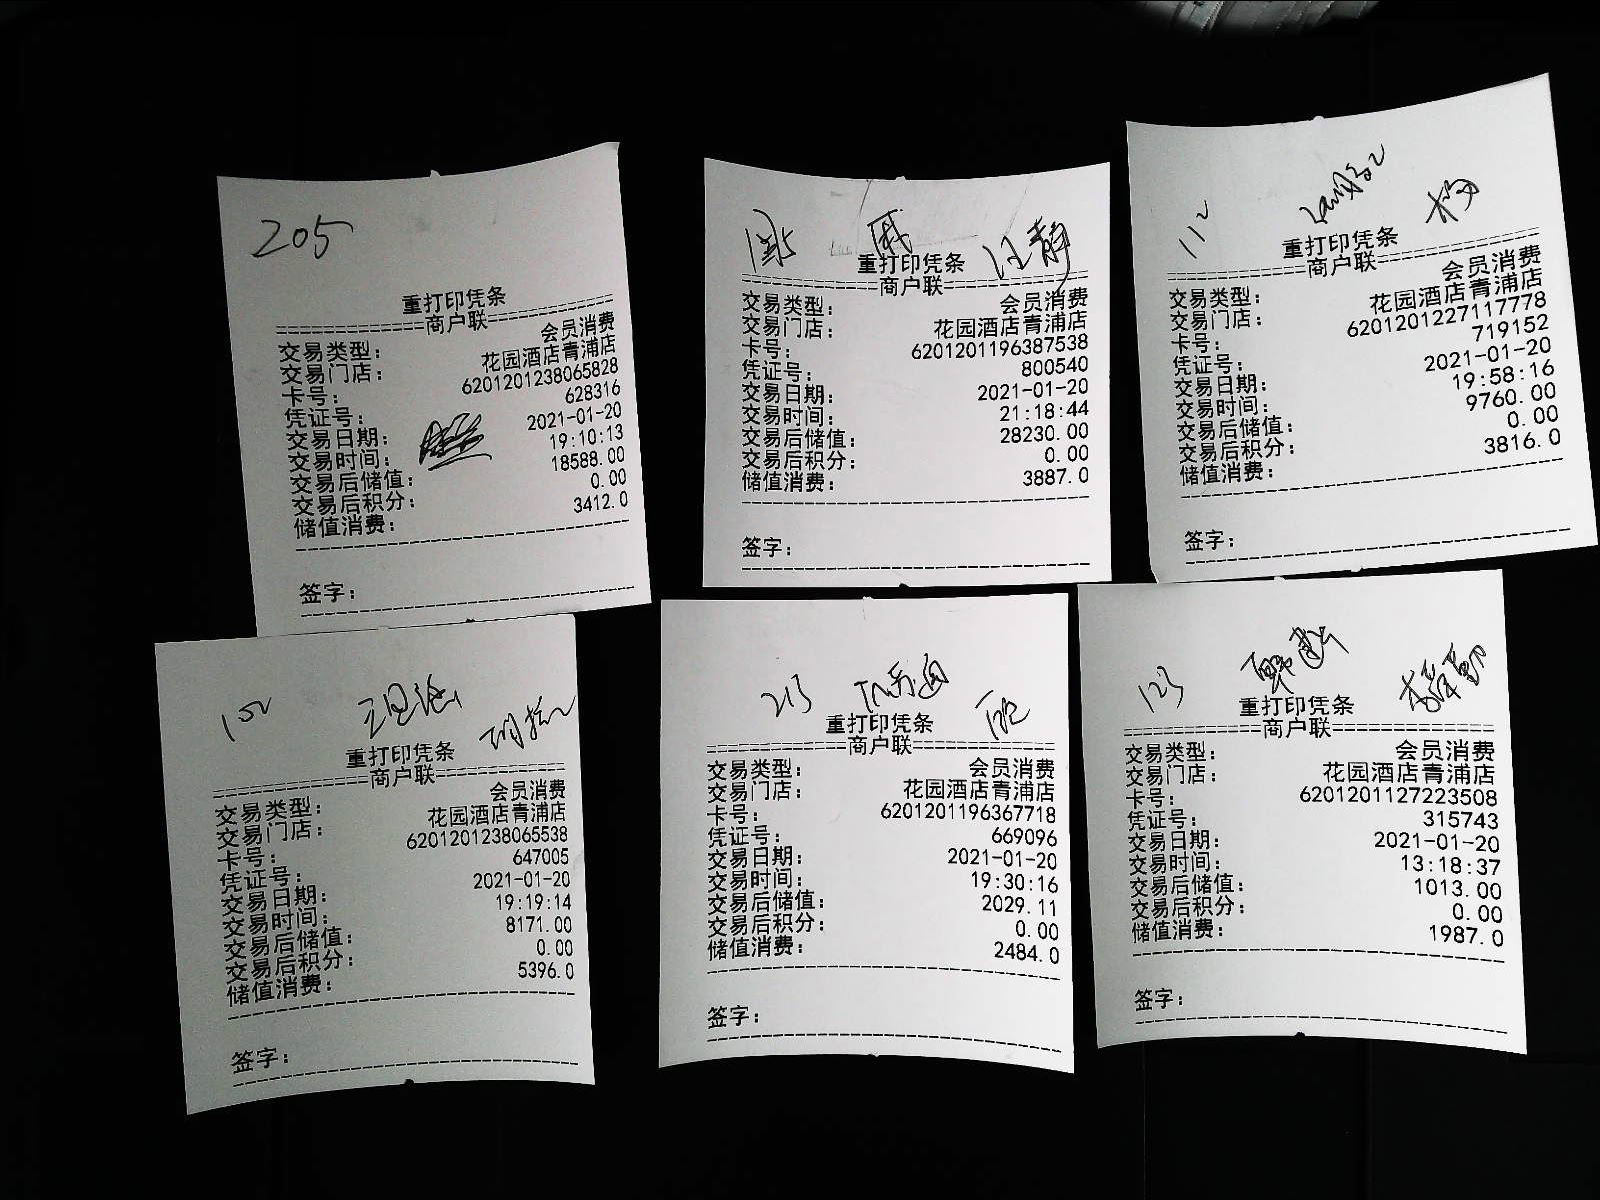 205
重打印凭条
商户联
交易类型: 会员消费
交易门店: 花园酒店青浦店
卡号: 6201201238065828
凭证号: 628316
交易日期: 2021-01-20
交易时间: 19:10:13
交易后储值: 18588.00
交易后积分: 0.00
储值消费: 3412.0
签字:
汪静
重打印凭条
商户联
交易类型: 会员消费
交易门店: 花园酒店青浦店
卡号: 6201201196387538
凭证号: 800540
交易日期: 2021-01-20
交易时间: 21:18:44
交易后储值: 28230.00
交易后积分: 0.00
储值消费: 3887.0
签字:
112 杨
重打印凭条
商户联
交易类型: 会员消费
交易门店: 花园酒店青浦店
卡号: 6201201227117778
凭证号: 719152
交易日期: 2021-01-20
交易时间: 19:58:16
交易后储值: 9760.00
交易后积分: 0.00
储值消费: 3816.0
签字:
102
重打印凭条
商户联
交易类型: 会员消费
交易门店: 花园酒店青浦店
卡号: 6201201238065538
凭证号: 647005
交易日期: 2021-01-20
交易时间: 19:19:14
交易后储值: 8171.00
交易后积分: 0.00
储值消费: 5396.0
签字:
213
重打印凭条
商户联
交易类型: 会员消费
交易门店: 花园酒店青浦店
卡号: 6201201196367718
凭证号: 669096
交易日期: 2021-01-20
交易时间: 19:30:16
交易后储值: 2029.11
交易后积分: 0.00
储值消费: 2484.0
签字:
123
重打印凭条
商户联
交易类型: 会员消费
交易门店: 花园酒店青浦店
卡号: 6201201127223508
凭证号: 315743
交易日期: 2021-01-20
交易时间: 13:18:37
交易后储值: 1013.00
交易后积分: 0.00
储值消费: 1987.0
签字: